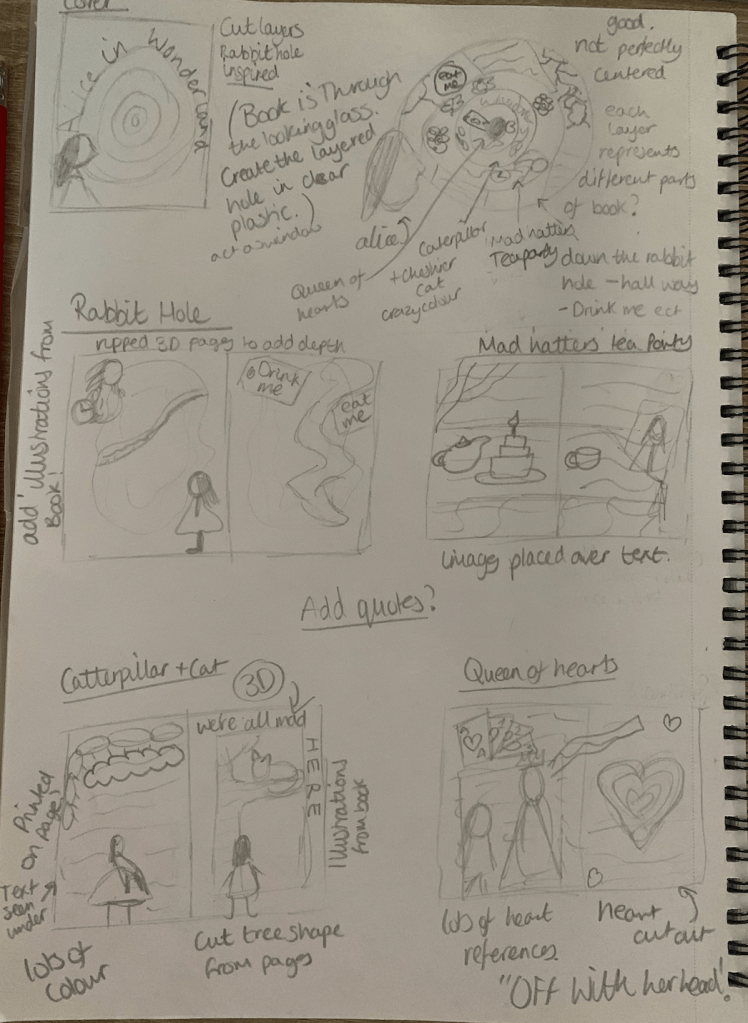 Cover
Alice in Wonderland
Cut layers
Rabbit hole
inspired
(Book is Through
the looking glass.
Create the layered
hole in clear
plastic.)
act as window
eat
me
good.
not perfectly
centered
each
layer
represents
different parts
of book?
alice
Queen of
hearts
Caterpillar
+ cheshier
cat
crazy colour
Mad hatters
Tea party
down the rabbit
hole - hall way
- Drink me ect
Rabbit Hole
ripped 3D pages to add depth
add illustrations from
Book!
Drink
me
eat
me
Mad hatters tea Party
Images placed over text.
Add quotes?
Catterpillar + Cat
3D
we're all mad
HERE
Illustrations
from book
on Printed
Page
Text
seen
under
lots of
colour
Cut tree shape
from pages
Queen of hearts
lots of heart
references
heart
cut out
"Off with her head!"